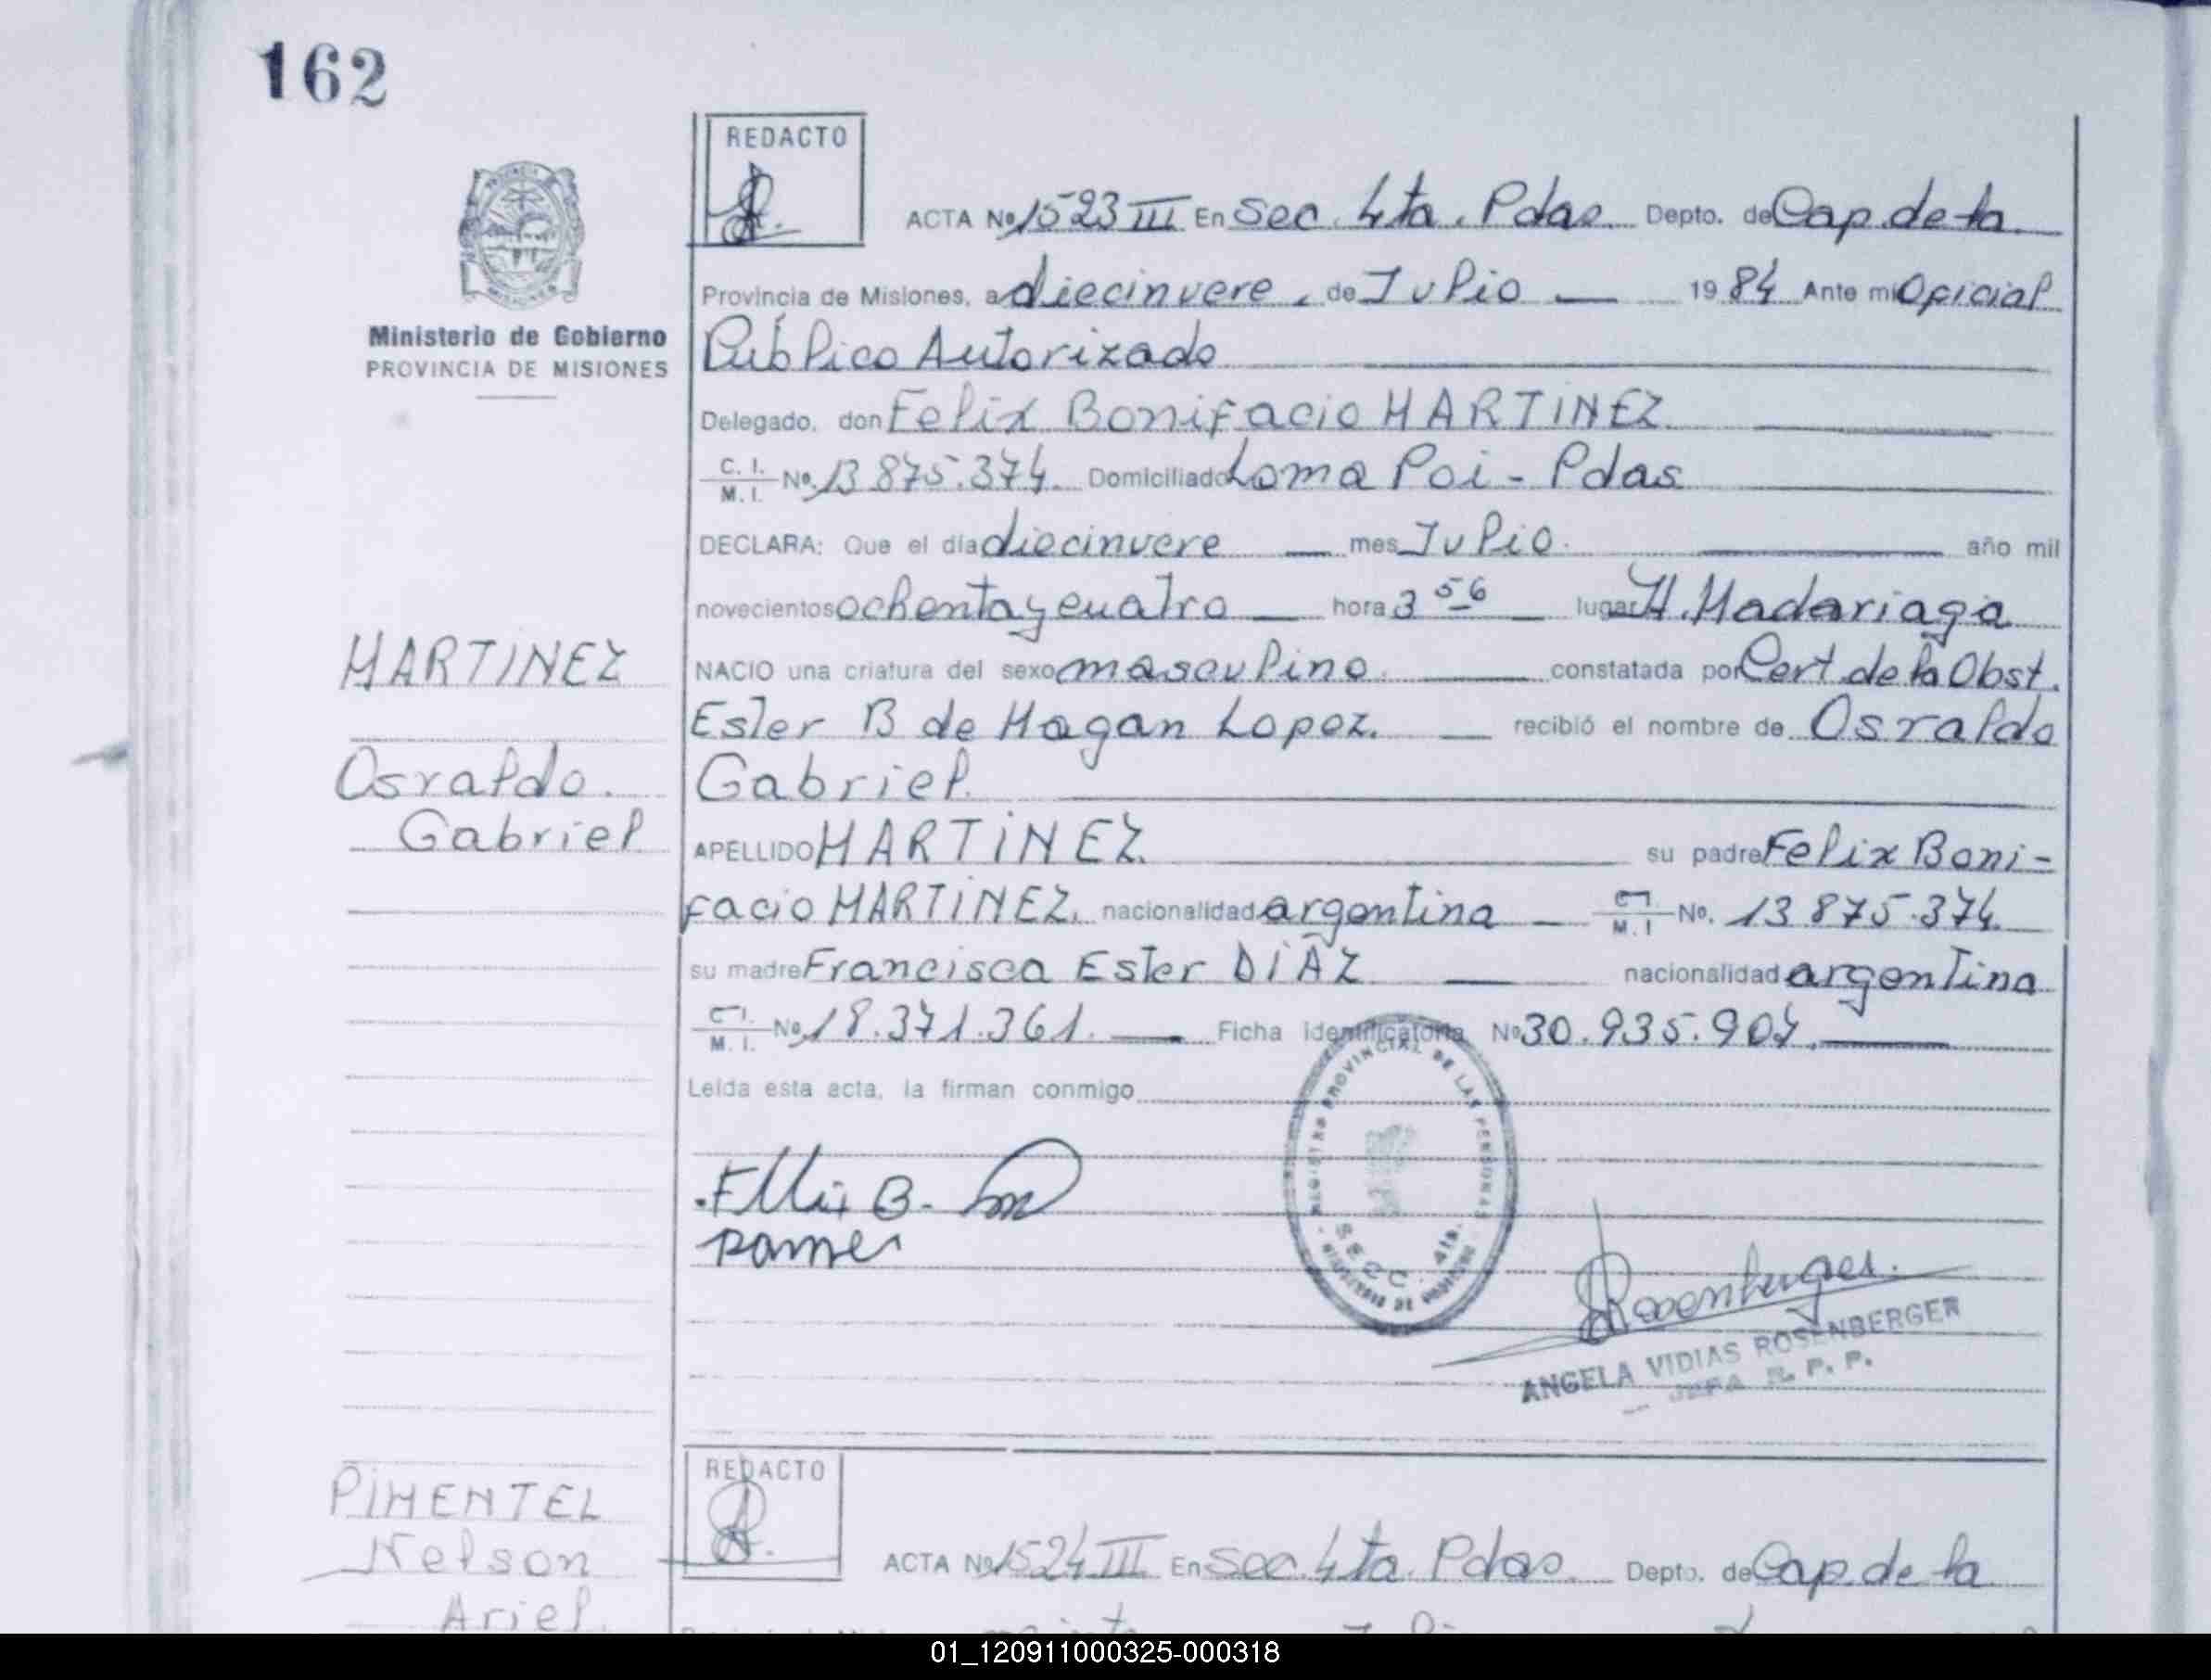 162
REDACTO
ACTA Nº 1523 III En Sec. 4ta. Pdas. Depto. de Cap. de la
Provincia de Misiones, a diecinueve de Julio 19 84 Ante mi Oficial
Público Autorizado
Ministerio de Gobierno
PROVINCIA DE MISIONES
Delegado, don Felix Bonifacio MARTINEZ
C. I. M. I. Nº 13.875.374. Domiciliado Loma Poi - Pdas
DECLARA: Que el día diecinueve mes Julio. año mil
novecientos ochenta y cuatro hora 3 56 lugar H. Madariaga
MARTINEZ
NACIO una criatura del sexo masculino. constatada por Cert. de la Obst.
Ester B de Hagan Lopez. recibió el nombre de Osvaldo
Osvaldo.
Gabriel.
Gabriel
APELLIDO MARTINEZ su padre Felix Boni=
facio MARTINEZ. nacionalidad argentina C.I. M.I Nº. 13.875.374.
su madre Francisca Ester DIAZ nacionalidad argentina
C.I. M. I. Nº 18.371.361. Ficha identificatoria Nº 30.935.904.
Leida esta acta, la firman conmigo
REGISTRO PROVINCIAL DE LAS PERSONAS
SECC. 4ta.
MINISTERIO DE GOBIERNO
Rosenberger
ANGELA VIDIAS ROSENBERGER
JEFA R. P. P.
REDACTO
PIMENTEL
Nelson
Ariel
ACTA Nº 1524 III En Sec. 4ta. Pdas. Depto. de Cap. de la
01_120911000325-000318